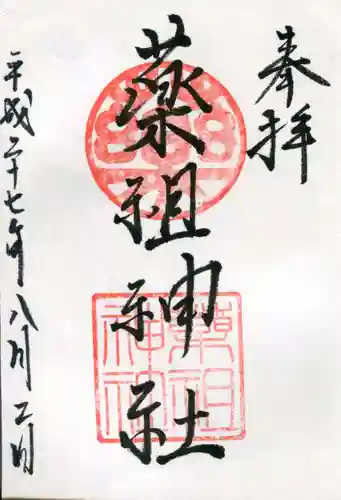 奉拝
薬祖神社
平成二十七年八月二日
薬祖
神社